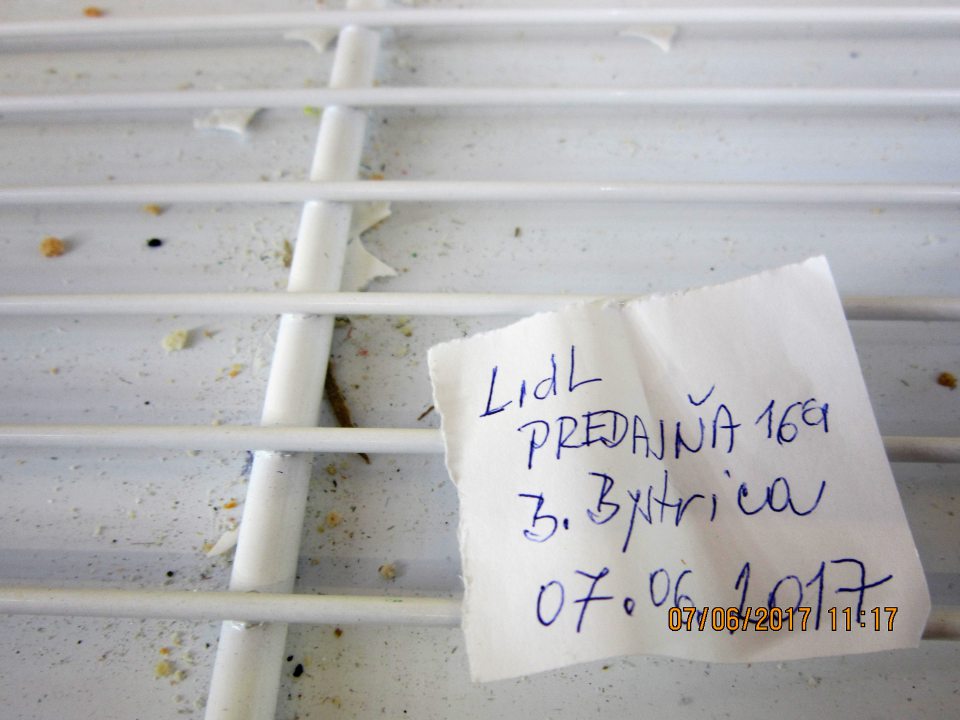 LidL
PREDAJŇA 169
B. Bystrica
07.06.2017
07/06/2017 11:17